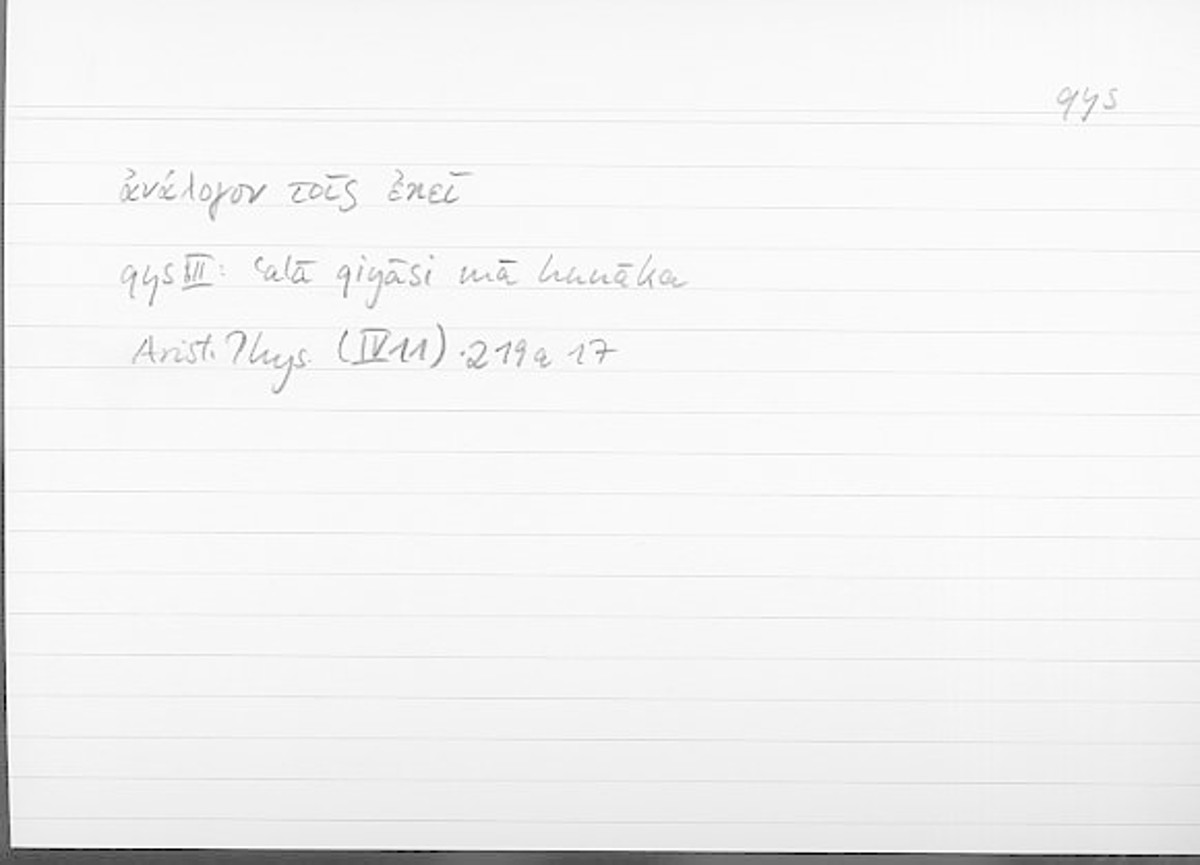 qys
ἀνάλογον τοῖς ἐκεῖ
qys III: ʿalā qiyāsi mā hunāka
Arist. Phys. (IV 11) 219a 17